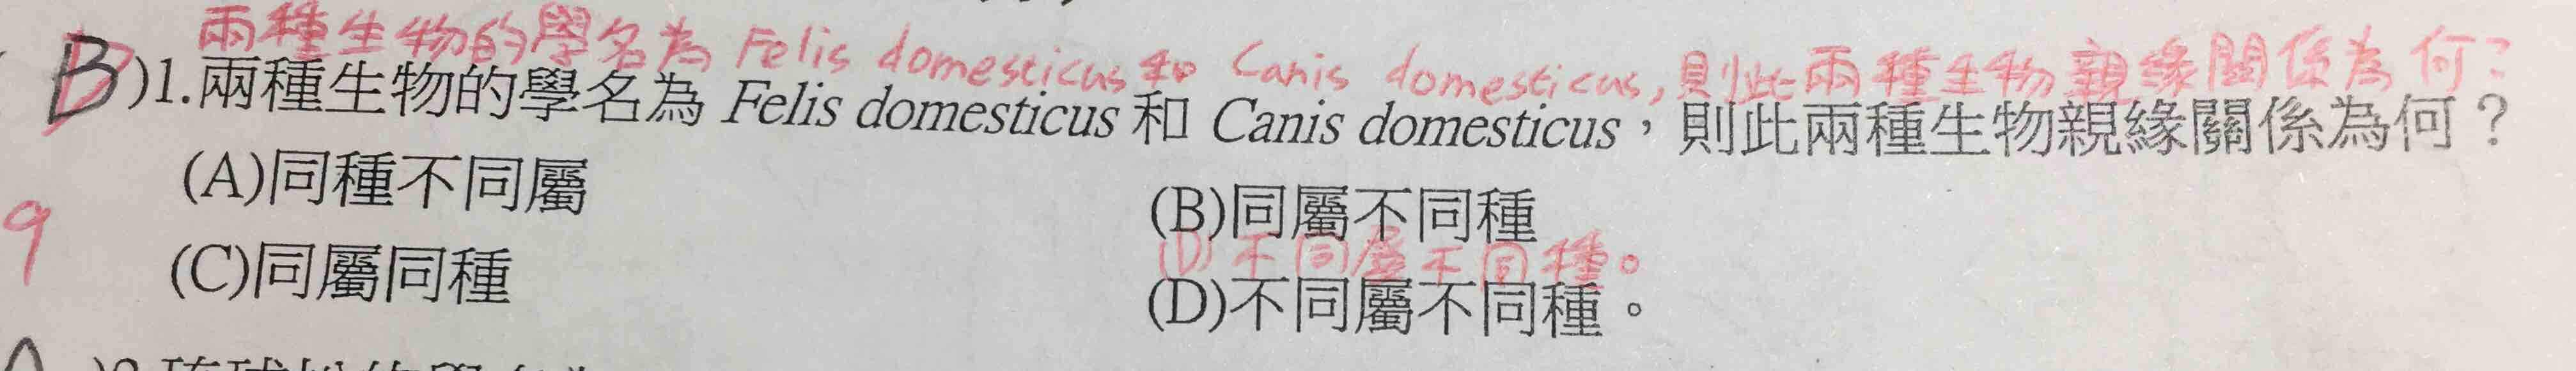 兩種生物的學名為 Felis domesticus 和 Canis domesticus, 則此兩種生物親緣關係為何?
B)1.兩種生物的學名為 Felis domesticus 和 Canis domesticus，則此兩種生物親緣關係為何？
(A)同種不同屬
(B)同屬不同種
9
(D)不同屬不同種。
(C)同屬同種
(D)不同屬不同種。